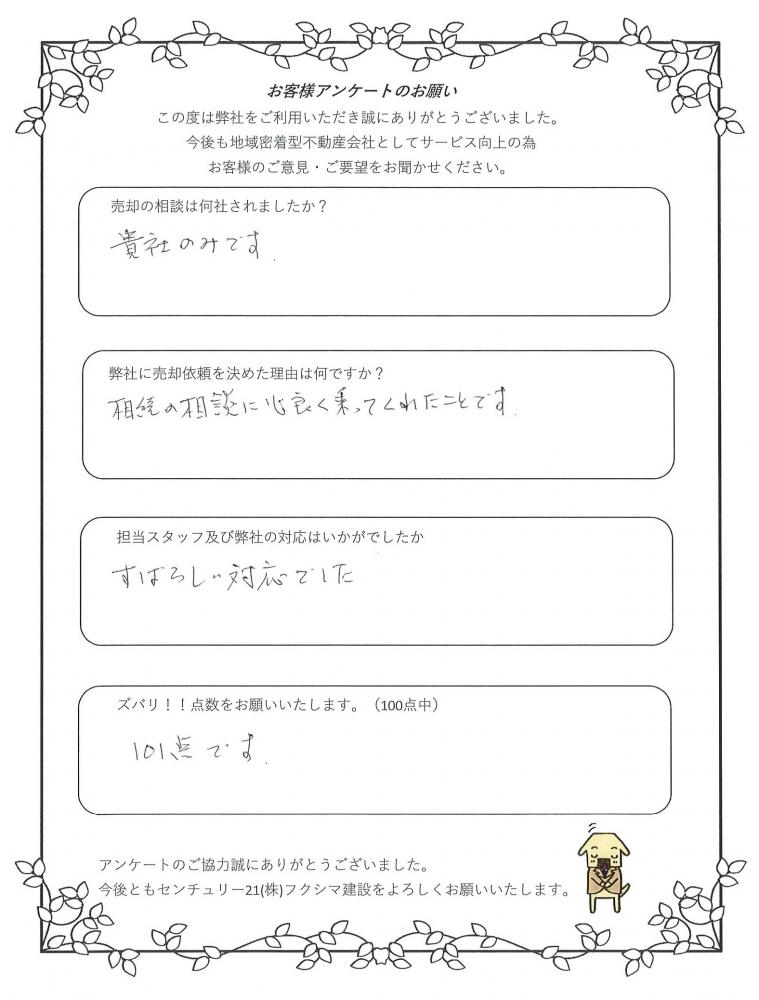 お客様アンケートのお願い
この度は弊社をご利用いただき誠にありがとうございました。
今後も地域密着型不動産会社としてサービス向上の為
お客様のご意見・ご要望をお聞かせください。
売却の相談は何社されましたか？
貴社のみです.
弊社に売却依頼を決めた理由は何ですか？
相続の相談に心良く乗ってくれたことです.
担当スタッフ及び弊社の対応はいかがでしたか
すばらしい対応でした
ズバリ！！点数をお願いいたします。（100点中）
101点です.
アンケートのご協力誠にありがとうございました。
今後ともセンチュリー21(株)フクシマ建設をよろしくお願いいたします。